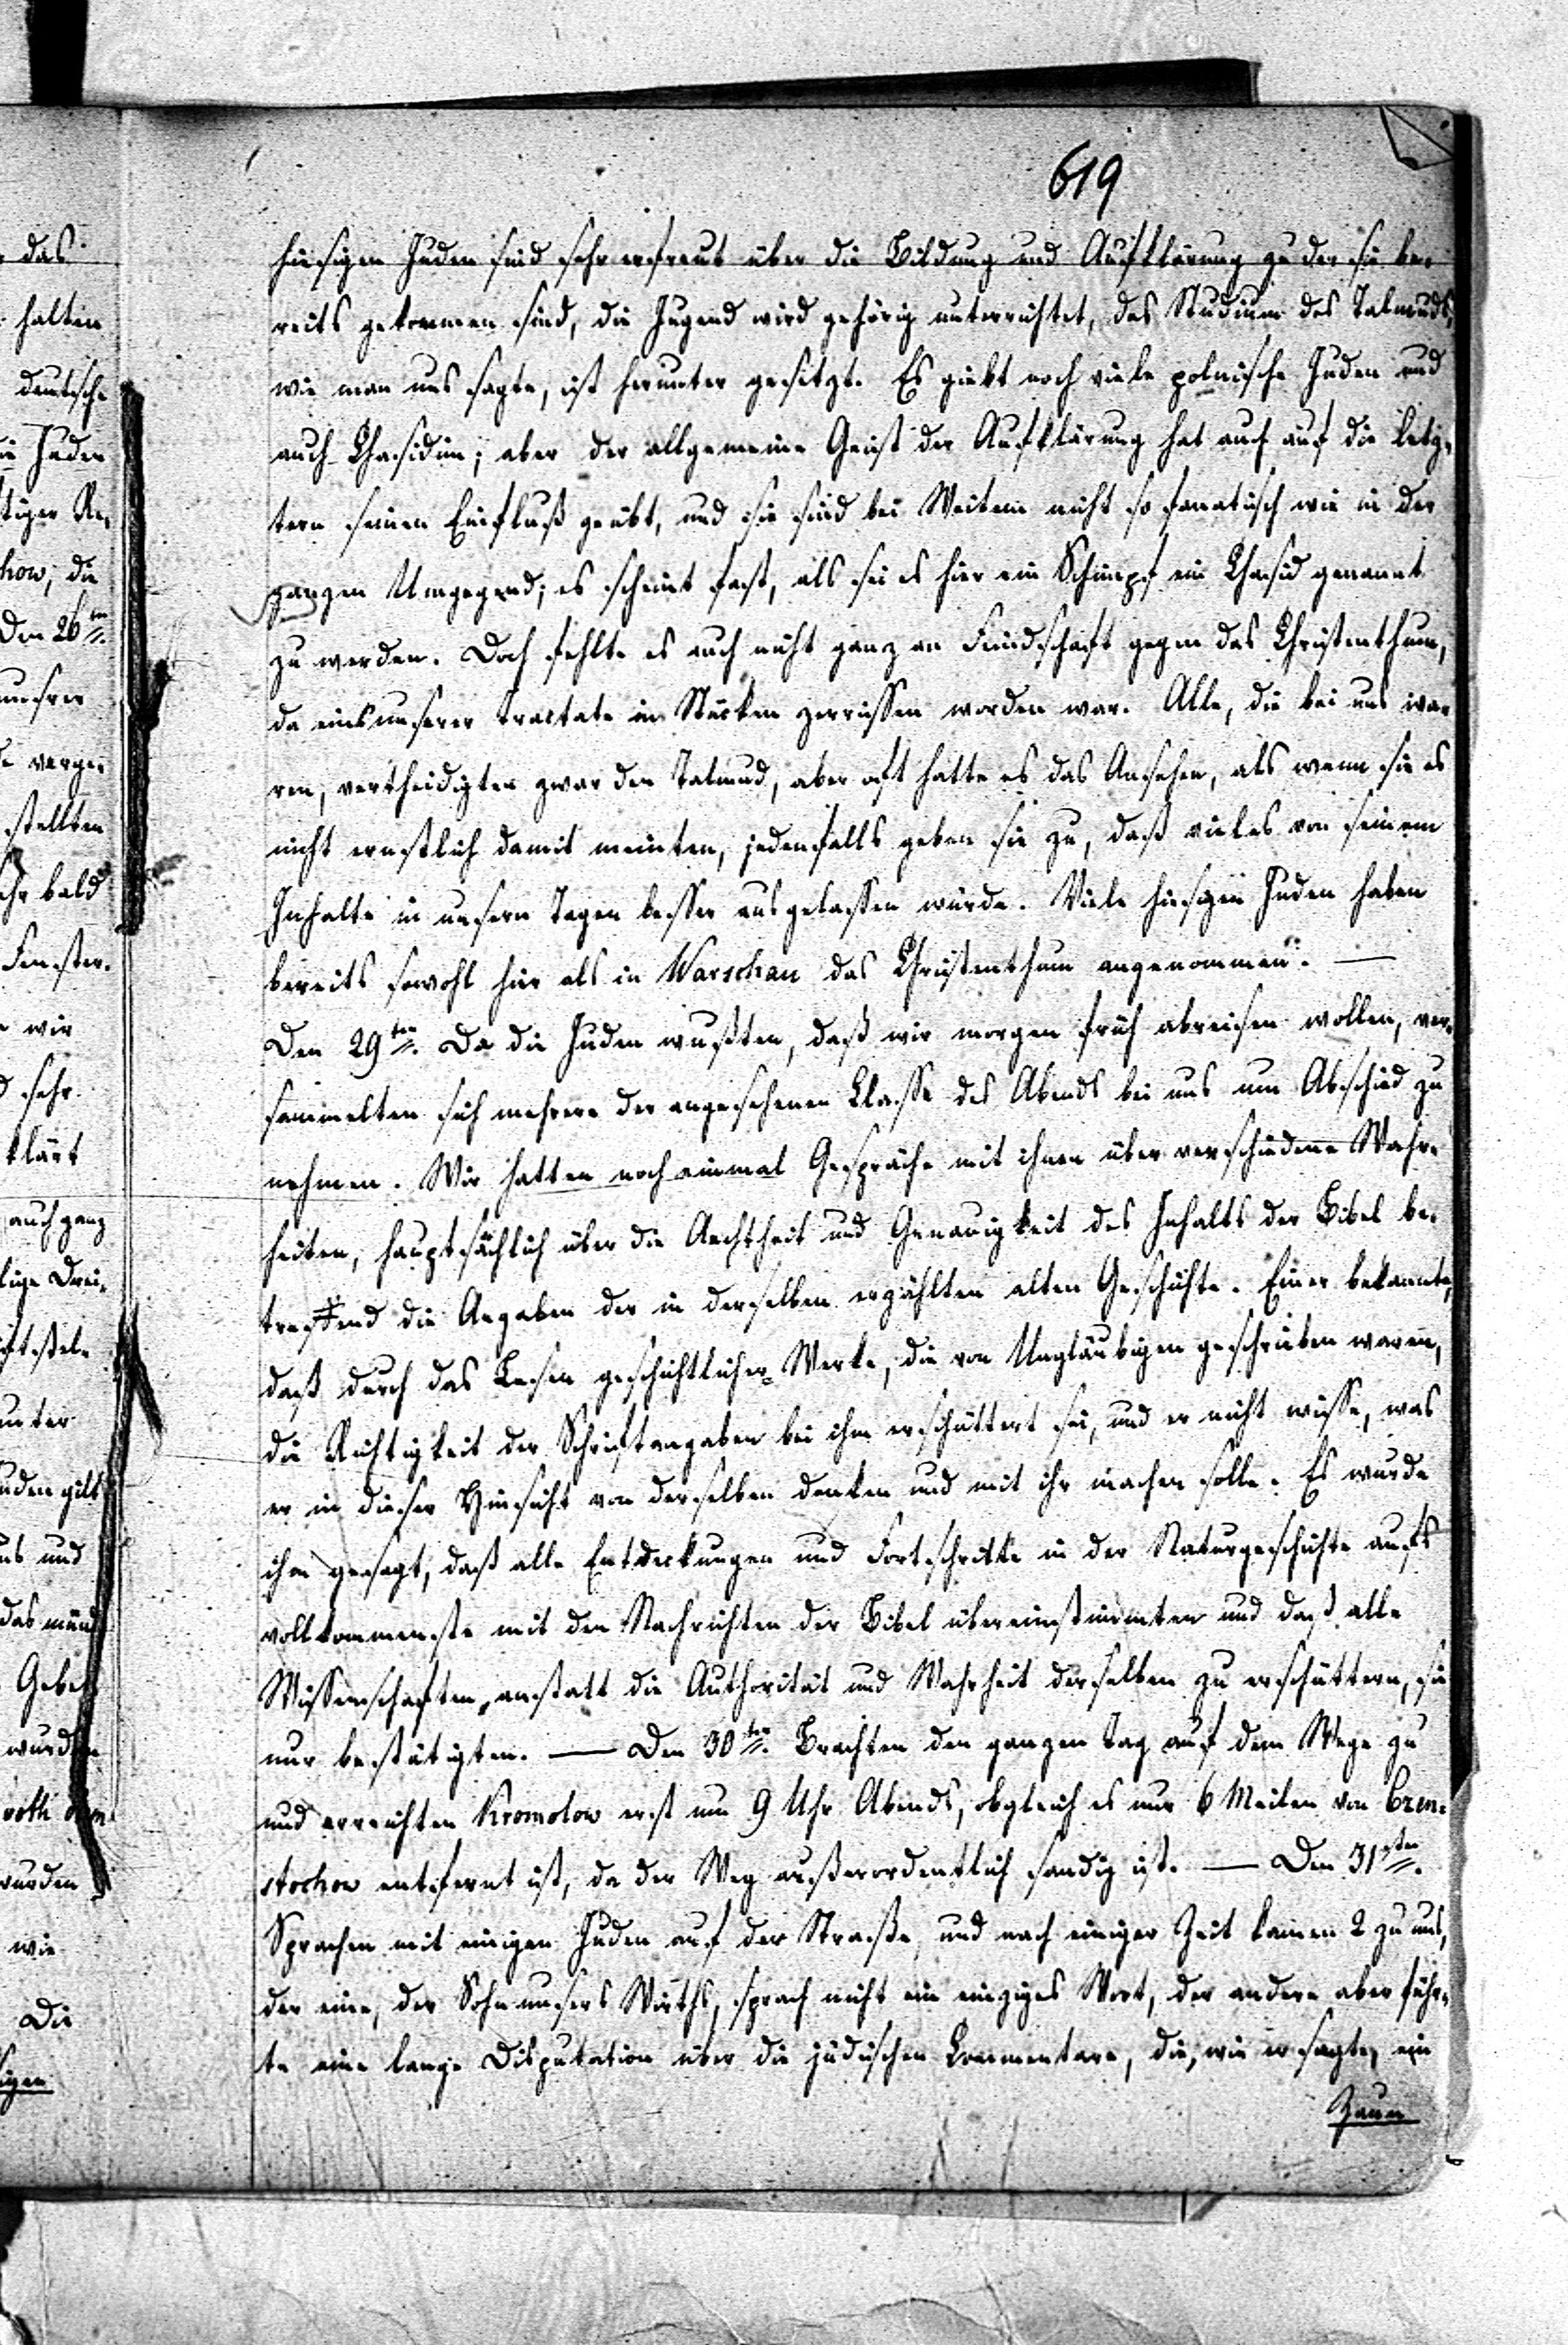 619
hiesigen Juden sind sehr erfreut über die Bildung und Aufklärung zu der sie be-
reits gekommen sind, die Jugend wird gehörig unterrichtet, das Studium des Talmuds,
wie man uns sagte, ist herunter gesetzt. Es giebt noch viele polnische Juden und
auch Chasidim; aber der allgemeine Geist der Aufklärung hat auch auf die letz-
tern seinen Einfluß geübt, und sie sind bei Weitem nicht so fanatisch wie in der
ganzen Umgegend; es scheint fast, als sei es hier ein Schimpf ein Chasid genannt
zu werden. Doch fehlte es auch nicht ganz an Feindschaft gegen das Christenthum,
da eins unserer Tractate in Stücken zerrissen worden war. Alle, die bei uns wa-
ren, vertheidigten zwar den Talmud, aber oft hatte es das Ansehen, als wenn sie es
nicht ernstlich damit meinten, jedenfalls geben sie zu, daß vieles von seinem
Inhalte in unsern Tagen besser ausgelassen würde. Viele hiesigen Juden haben
bereits sowohl hier als in Warschau das Christenthum angenommen. —
Den 29ten. Da die Juden wußten, daß wir morgen früh abreisen wollen, ver-
sammelten sich mehrere der angesehenen Classe des Abends bei uns um Abschied zu
nehmen. Wir hatten noch einmal Gespräche mit ihnen über verschiedene Wahr-
heiten, hauptsächlich über die Aechtheit und Genauigkeit des Inhalts der Bibel be-
treffend die Angaben der in derselben erzählten alten Geschichte. Einer bekannte,
daß durch das Lesen geschichtlicher Werke, die von Ungläubigen geschrieben waren,
die Richtigkeit der Schriftangaben bei ihm erschüttert sei, und er nicht wisse, was
er in dieser Hinsicht von derselben denken und mit ihr machen solle. Es wurde
ihm gesagt, daß alle Entdeckungen und Fortschritte in der Naturgeschichte aufs
vollkommenste mit den Nachrichten der Bibel übereinstimmten und daß alle
Wissenschaften, anstatt die Authorität und Wahrheit derselben zu erschüttern, sie
nur bestätigten. — Den 30ten. Brachten den ganzen Tag auf dem Wege zu
und erreichten Kromolow erst um 9 Uhr Abends, obgleich es nur 6 Meilen von Czen-
stochow entfernt ist, da der Weg außerordentlich sandig ist. — Den 31sten.
Sprachen mit einigen Juden auf der Straße und nach einiger Zeit kamen 2 zu uns,
der eine, der Sohn unsers Wirths, sprach nicht ein einziges Wort, der andere aber führ-
te eine lange Disputation über die jüdischen Commentare, die, wie er sagte, ein
Zaun